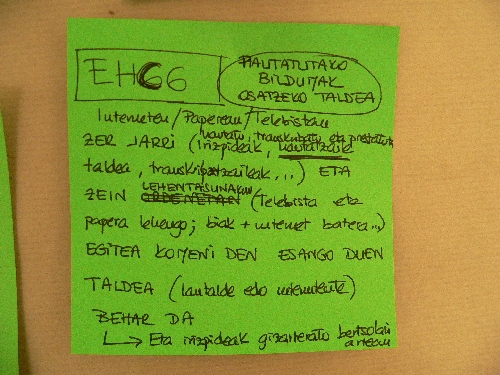 EH66
HAUTATUTAKO
BILDUMAK
OSATZEKO TALDEA
Interneten/Paperean/Telebistan
hautatu, transkribatu eta prestatu
ZER JARRI (irizpideak, hautatzaile
taldea, transkripatzaileak,...) ETA
LEHENTASUNAKIN
ZEIN ORDENETAN (Telebista eta
papera lehengo; biak + internet batera...)
EGITEA KOMENI DEN ESANGO DUEN
TALDEA (lantalde edo
BEHAR DA
Eta irizpideak gizarteratu bertsolari
artean